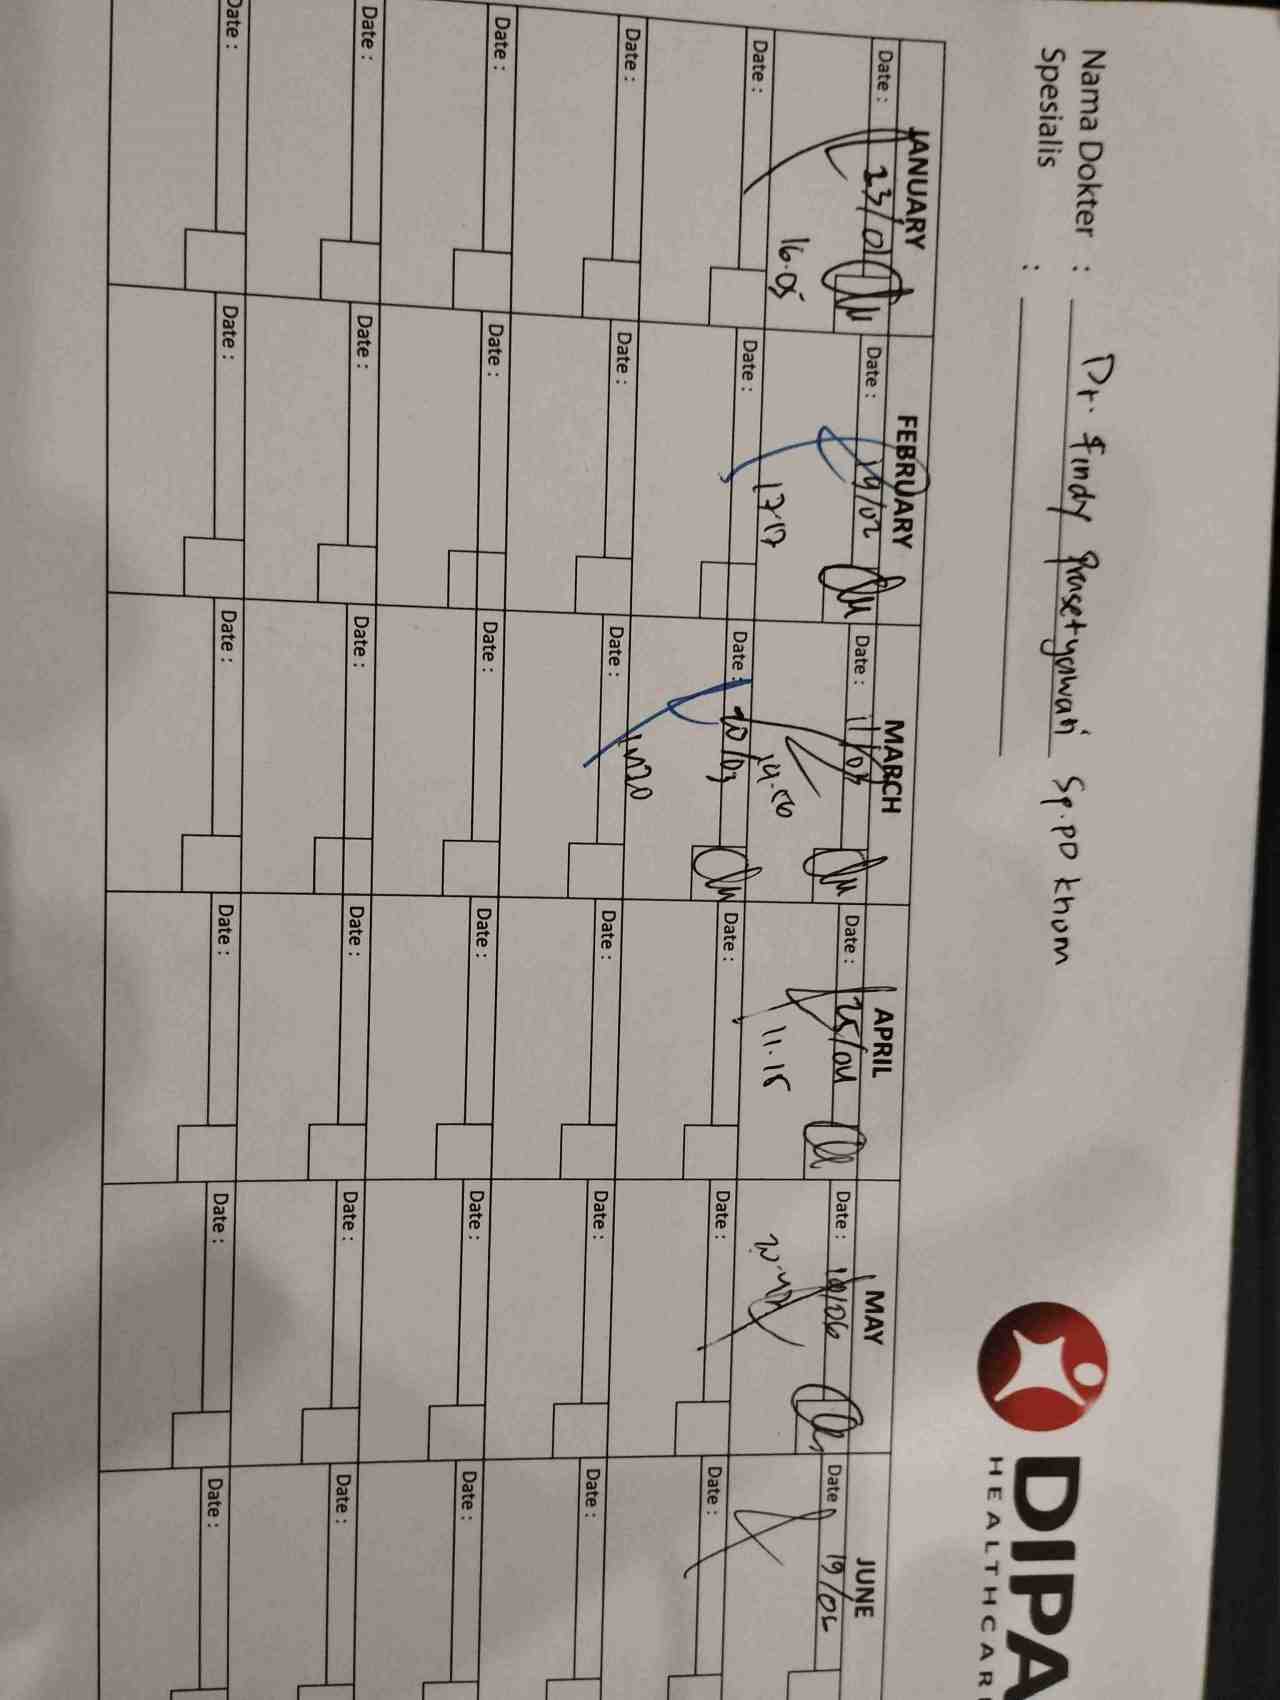 Nama Dokter : Dr. Findy Prasetyawati Sp.PD Khom
Spesialis :
DIPA
HEALTHCAR
JANUARY FEBRUARY MARCH APRIL MAY JUNE
Date : 23/01 Date : 19/02 Date : 11/03 Date : 25/04 Date : Date : 19/06
16.05 17.17 14.56 11.15
Date : Date : Date : 20/03 Date : Date : Date :
Date : Date : Date : Date : Date : Date :
Date : Date : Date : Date : Date : Date :
Date : Date : Date : Date : Date : Date :
Date : Date : Date : Date : Date : Date :